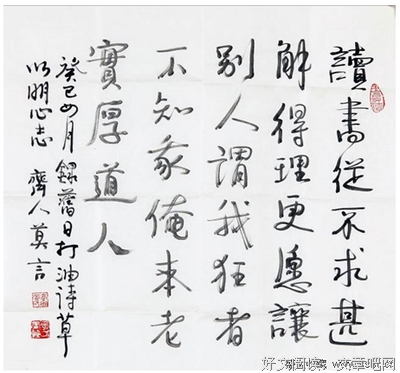 讀書從不求甚
解得理更愿讓
别人謂我狂者
不知我俺本老
實厚道人
癸巳月錄舊日打油詩草
以明心志 齊人莫言